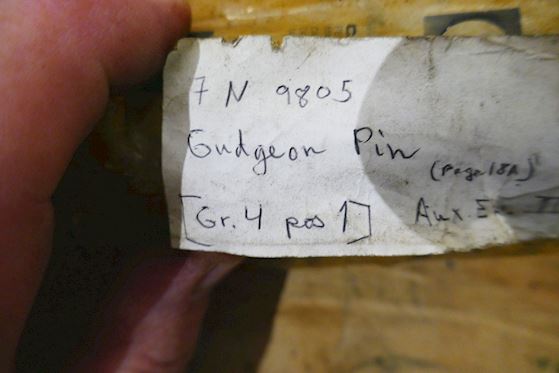 7 N 9805
Gudgeon Pin
(Page 18A)
[Gr. 4 pos 1]
Aux.